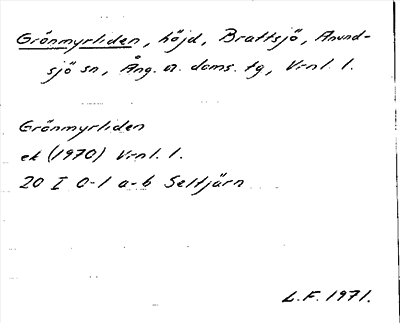 Grönmyrliden, höjd, Brattsjö, Anund-
sjö sn, Ång. v. doms. tg, Vrnl. l.
Grönmyrliden
ek (1970) Vrnl. l.
20 I 0-1 a-b Seltjärn
L.F. 1971.